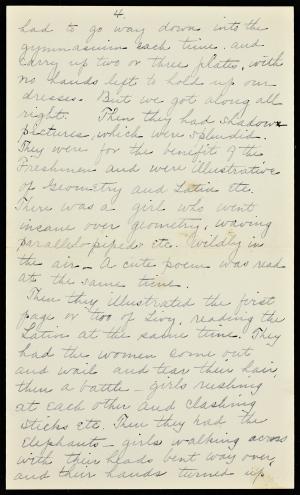 4
had to go way down into the
gymnasium each time and
carry up two or three plates, with
no hands left to hold up our
dresses. But we got along all
right. Then they had shadow
pictures, which were splendid.
They were for the benefit of the
Freshmen and were illustrative
of Geometry and Latin etc.
There was a girl who went
insane over geometry, waving
parallel-piped etc. wildly in
the air – A cute poem was read
at the same time.
Then they illustrated the first
page or two of Livy, reading the
Latin at the same time. They
had the women come out
and wail and tear their hair,
then a battle – girls rushing
at each other and clashing
sticks etc. Then they had the
elephants – girls walking across
with their heads bent way over,
and their hands turned up